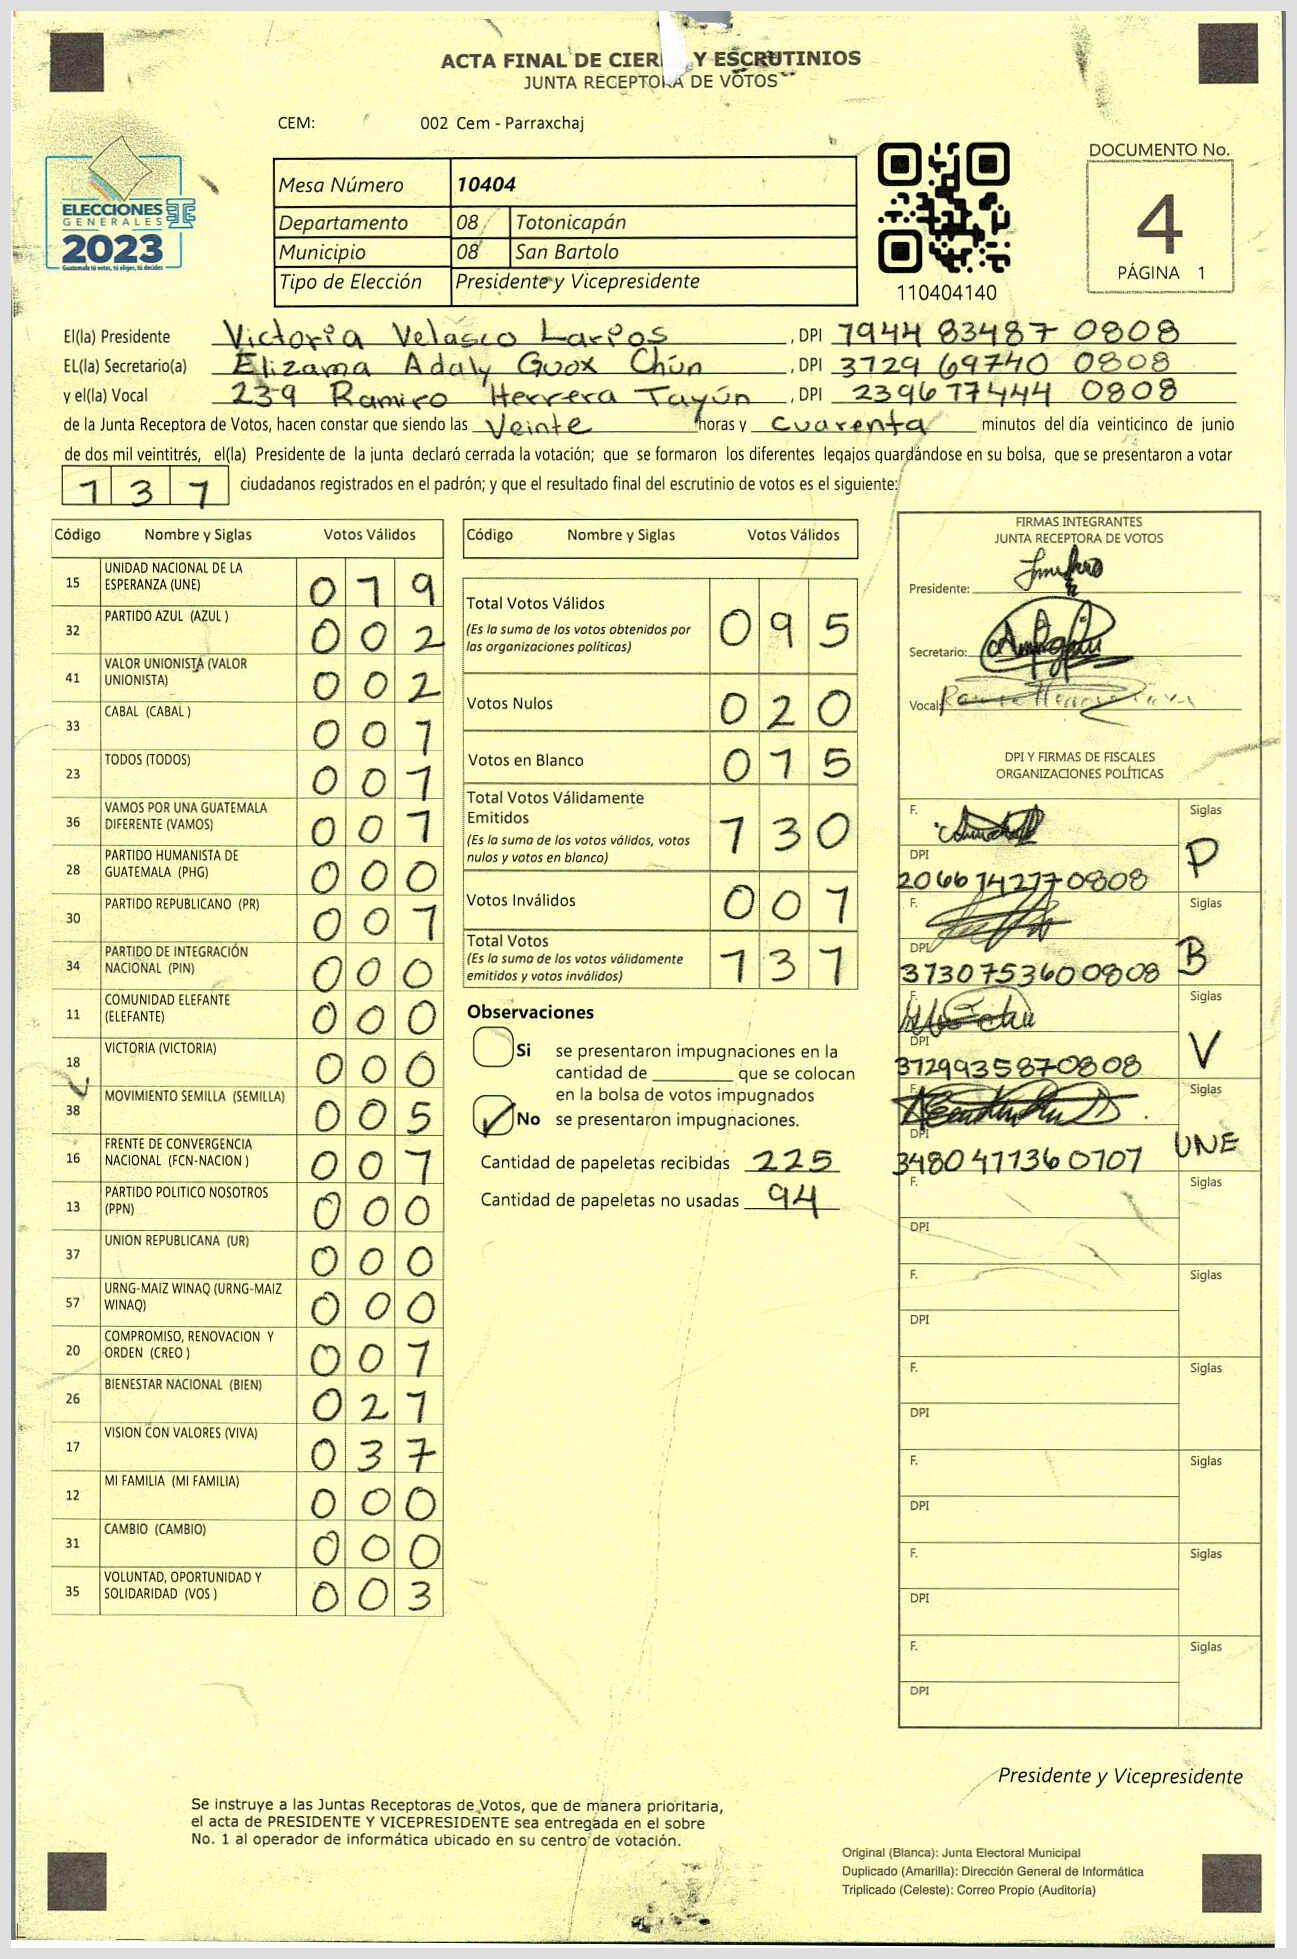 ACTA FINAL DE CIERRE Y ESCRUTINIOS
JUNTA RECEPTORA DE VOTOS
CEM: 002 Cem - Parraxchaj
ELECCIONES
GENERALES
2023
Guatemala tú votas, tú eliges, tú decides
Mesa Número 10404
Departamento 08 Totonicapán
Municipio 08 San Bartolo
Tipo de Elección Presidente y Vicepresidente
110404140
DOCUMENTO No.
4
PÁGINA 1
El(la) Presidente Victoria Velasco Larios, DPI 1944 83487 0808
EL(la) Secretario(a) Elizama Adaly Guox Chún, DPI 3129 69740 0808
y el(la) Vocal 239 Ramiro Herrera Tayún, DPI 2396 17444 0808
de la Junta Receptora de Votos, hacen constar que siendo las Veinte horas y cuarenta minutos del día veinticinco de junio
de dos mil veintitrés, el(la) Presidente de la junta declaró cerrada la votación; que se formaron los diferentes legajos guardándose en su bolsa, que se presentaron a votar
1 3 1 ciudadanos registrados en el padrón; y que el resultado final del escrutinio de votos es el siguiente:
Código Nombre y Siglas Votos Válidos
15 UNIDAD NACIONAL DE LA
ESPERANZA (UNE) 0 1 9
32 PARTIDO AZUL (AZUL ) 0 0 2
41 VALOR UNIONISTA (VALOR
UNIONISTA) 0 0 2
33 CABAL (CABAL ) 0 0 1
23 TODOS (TODOS) 0 0 1
36 VAMOS POR UNA GUATEMALA
DIFERENTE (VAMOS) 0 0 1
28 PARTIDO HUMANISTA DE
GUATEMALA (PHG) 0 0 0
30 PARTIDO REPUBLICANO (PR) 0 0 1
34 PARTIDO DE INTEGRACIÓN
NACIONAL (PIN) 0 0 0
11 COMUNIDAD ELEFANTE
(ELEFANTE) 0 0 0
18 VICTORIA (VICTORIA) 0 0 0
38 MOVIMIENTO SEMILLA (SEMILLA) 0 0 5
16 FRENTE DE CONVERGENCIA
NACIONAL (FCN-NACION ) 0 0 1
13 PARTIDO POLITICO NOSOTROS
(PPN) 0 0 0
37 UNION REPUBLICANA (UR) 0 0 0
57 URNG-MAIZ WINAQ (URNG-MAIZ
WINAQ) 0 0 0
20 COMPROMISO, RENOVACION Y
ORDEN (CREO ) 0 0 1
26 BIENESTAR NACIONAL (BIEN) 0 2 1
17 VISION CON VALORES (VIVA) 0 3 7
12 MI FAMILIA (MI FAMILIA) 0 0 0
31 CAMBIO (CAMBIO) 0 0 0
35 VOLUNTAD, OPORTUNIDAD Y
SOLIDARIDAD (VOS ) 0 0 3
Código Nombre y Siglas Votos Válidos
Total Votos Válidos 0 9 5
(Es la suma de los votos obtenidos por
las organizaciones políticas)
Votos Nulos 0 2 0
Votos en Blanco 0 1 5
Total Votos Válidamente
Emitidos 1 3 0
(Es la suma de los votos válidos, votos
nulos y votos en blanco)
Votos Inválidos 0 0 1
Total Votos 1 3 1
(Es la suma de los votos válidamente
emitidos y votos inválidos)
Observaciones
Si se presentaron impugnaciones en la
cantidad de ________ que se colocan
en la bolsa de votos impugnados
No se presentaron impugnaciones.
Cantidad de papeletas recibidas 225
Cantidad de papeletas no usadas 94
FIRMAS INTEGRANTES
JUNTA RECEPTORA DE VOTOS
Presidente:
Secretario:
Vocal:
DPI Y FIRMAS DE FISCALES
ORGANIZACIONES POLÍTICAS
F. Siglas
DPI P
2066 14217 0808
F. Siglas
DPI B
3130153600808
F. Siglas
DPI V
3129935870808
F. Siglas
DPI UNE
F. Siglas
DPI
F. Siglas
DPI
F. Siglas
DPI
F. Siglas
DPI
F. Siglas
DPI
F. Siglas
DPI
Presidente y Vicepresidente
Se instruye a las Juntas Receptoras de Votos, que de manera prioritaria,
el acta de PRESIDENTE Y VICEPRESIDENTE sea entregada en el sobre
No. 1 al operador de informática ubicado en su centro de votación.
Original (Blanca): Junta Electoral Municipal
Duplicado (Amarilla): Dirección General de Informática
Triplicado (Celeste): Correo Propio (Auditoría)